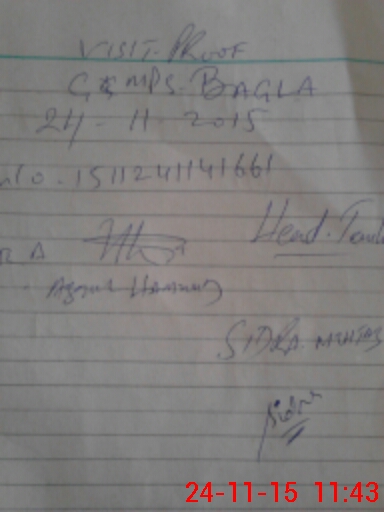 VISIT PROOF
GGMPS. BAGLA
24 - 11 - 2015
No. 1511241141661
Head. Teach
A
SIDRA. MUMTAZ
Sidra
24-11-15 11:43